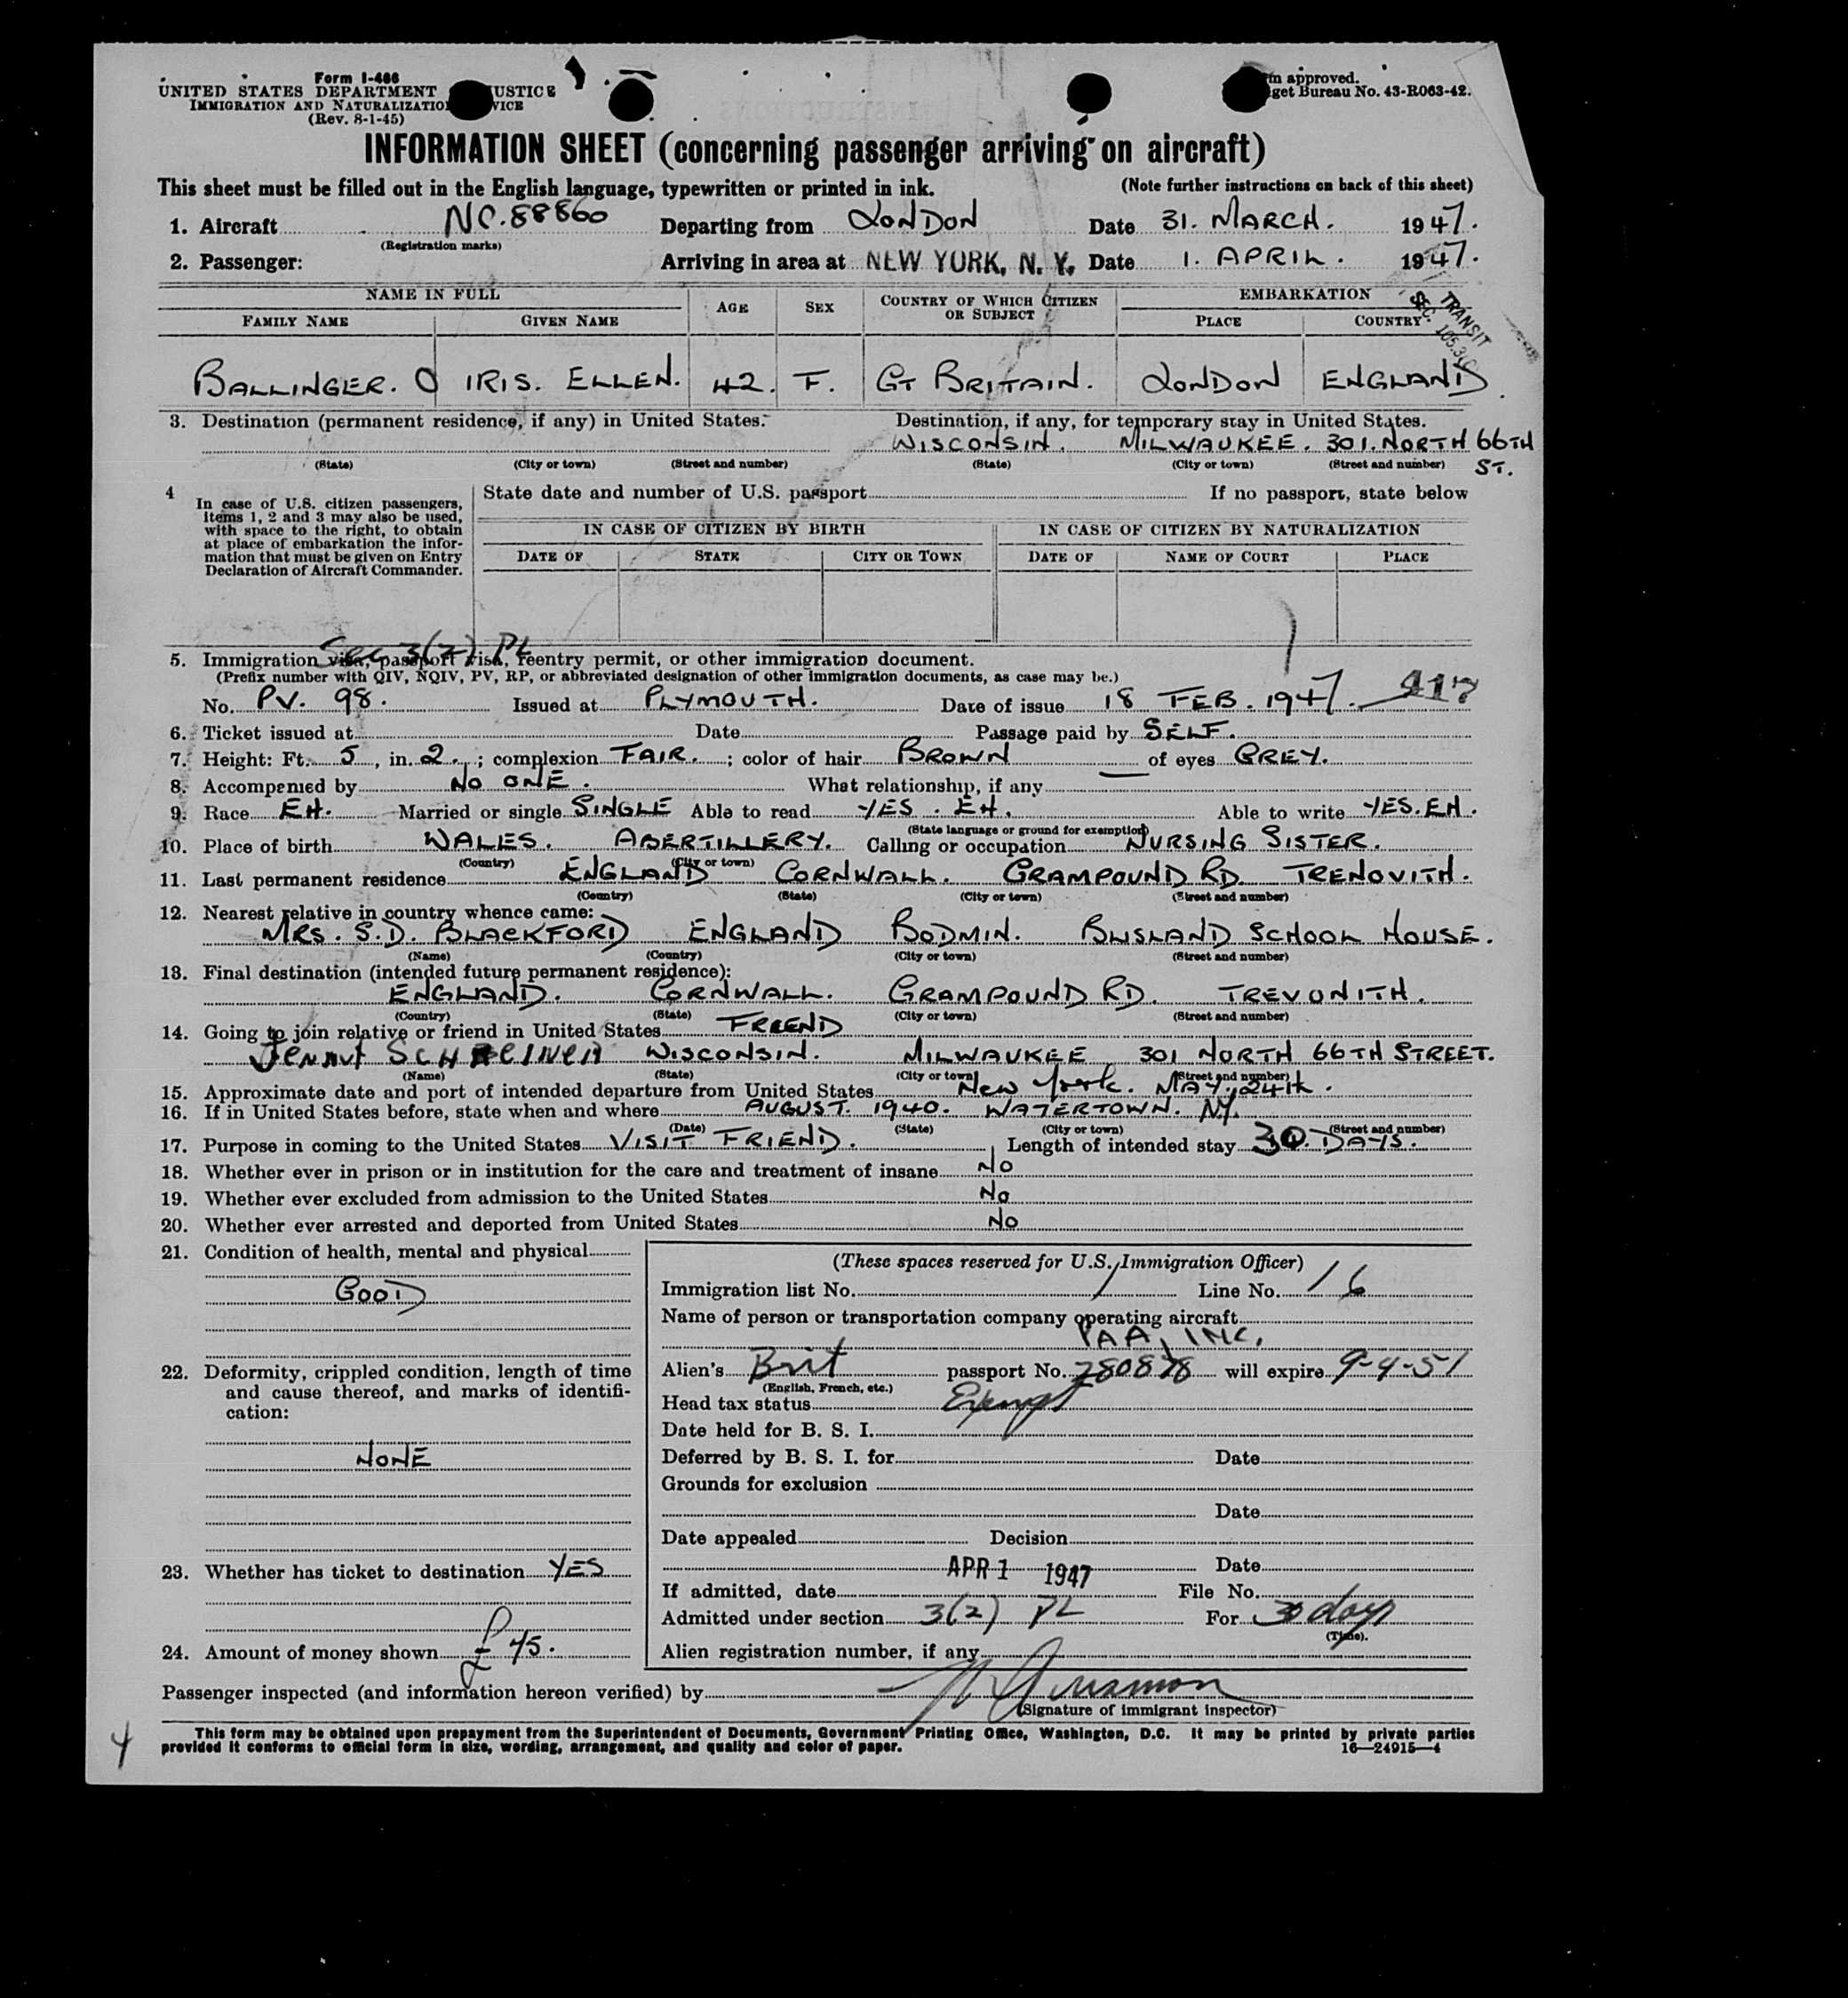 Form I-466
UNITED STATES DEPARTMENT USTICE
IMMIGRATION AND NATURALIZATIO VICE
(Rev. 8-1-45)
m approved.
get Bureau No. 43-R063-42.
INFORMATION SHEET (concerning passenger arriving on aircraft)
This sheet must be filled out in the English language, typewritten or printed in ink. (Note further instructions on back of this sheet)
1. Aircraft NC.88860 Departing from LONDON Date 31. MARCH. 1947.
(Registration marks)
2. Passenger: Arriving in area at NEW YORK, N. Y. Date 1. APRIL. 1947.
NAME IN FULL AGE SEX COUNTRY OF WHICH CITIZEN OR SUBJECT EMBARKATION
FAMILY NAME GIVEN NAME PLACE COUNTRY
TRANSIT
SEC. 105.3
BALLINGER. IRIS. ELLEN. 42. F. GT BRITAIN. LONDON ENGLAND
3. Destination (permanent residence, if any) in United States. Destination, if any, for temporary stay in United States.
WISCONSIN. MILWAUKEE. 301. NORTH 66TH ST.
(State) (City or town) (Street and number) (State) (City or town) (Street and number)
4 In case of U.S. citizen passengers, items 1, 2 and 3 may also be used, with space to the right, to obtain at place of embarkation the information that must be given on Entry Declaration of Aircraft Commander.
State date and number of U.S. passport If no passport, state below
IN CASE OF CITIZEN BY BIRTH IN CASE OF CITIZEN BY NATURALIZATION
DATE OF STATE CITY OR TOWN DATE OF NAME OF COURT PLACE
Sec 3(2) PL
5. Immigration visa, passport visa, reentry permit, or other immigration document.
(Prefix number with QIV, NQIV, PV, RP, or abbreviated designation of other immigration documents, as case may be.)
No. PV. 98. Issued at PLYMOUTH. Date of issue 18 FEB. 1947. 417
6. Ticket issued at Date Passage paid by SELF.
7. Height: Ft. 5, in. 2.; complexion FAIR.; color of hair BROWN of eyes GREY.
8. Accompanied by NO ONE. What relationship, if any
9. Race EH. Married or single SINGLE Able to read YES. EH. Able to write YES. EH.
(State language or ground for exemption)
10. Place of birth WALES. ABERTILLERY. Calling or occupation NURSING SISTER.
(Country) (City or town)
11. Last permanent residence ENGLAND CORNWALL. GRAMPOUND RD. TRENOVITH.
(Country) (State) (City or town) (Street and number)
12. Nearest relative in country whence came:
MRS. S.D. BLACKFORD ENGLAND BODMIN. BLISLAND SCHOOL HOUSE.
(Name) (Country) (City or town) (Street and number)
13. Final destination (intended future permanent residence):
ENGLAND. CORNWALL. GRAMPOUND RD. TREVONITH.
(Country) (State) (City or town) (Street and number)
14. Going to join relative or friend in United States FRIEND
WISCONSIN. MILWAUKEE 301 NORTH 66TH STREET.
(Name) (State) (City or town) (Street and number)
15. Approximate date and port of intended departure from United States New York. MAY. 24th.
16. If in United States before, state when and where AUGUST. 1940. WATERTOWN. NY.
(Date) (State) (City or town) (Street and number)
17. Purpose in coming to the United States VISIT FRIEND. Length of intended stay 30. DAYS.
18. Whether ever in prison or in institution for the care and treatment of insane NO
19. Whether ever excluded from admission to the United States No
20. Whether ever arrested and deported from United States No
21. Condition of health, mental and physical
GOOD
22. Deformity, crippled condition, length of time and cause thereof, and marks of identification:
NONE
23. Whether has ticket to destination YES
24. Amount of money shown £ 45.
(These spaces reserved for U.S. Immigration Officer)
Immigration list No. 1 Line No. 16
Name of person or transportation company operating aircraft
PAA, INC.
Alien's Brit passport No. 280878 will expire 9-4-51
(English, French, etc.)
Head tax status Exempt
Date held for B. S. I.
Deferred by B. S. I. for Date
Grounds for exclusion
Date
Date appealed Decision
APR 1 1947 Date
If admitted, date File No.
Admitted under section 3(2) PL For 30 days
(Time).
Alien registration number, if any
Passenger inspected (and information hereon verified) by
(Signature of immigrant inspector)
4
This form may be obtained upon prepayment from the Superintendent of Documents, Government Printing Office, Washington, D.C. It may be printed by private parties
provided it conforms to official form in size, wording, arrangement, and quality and color of paper. 16—24915-4